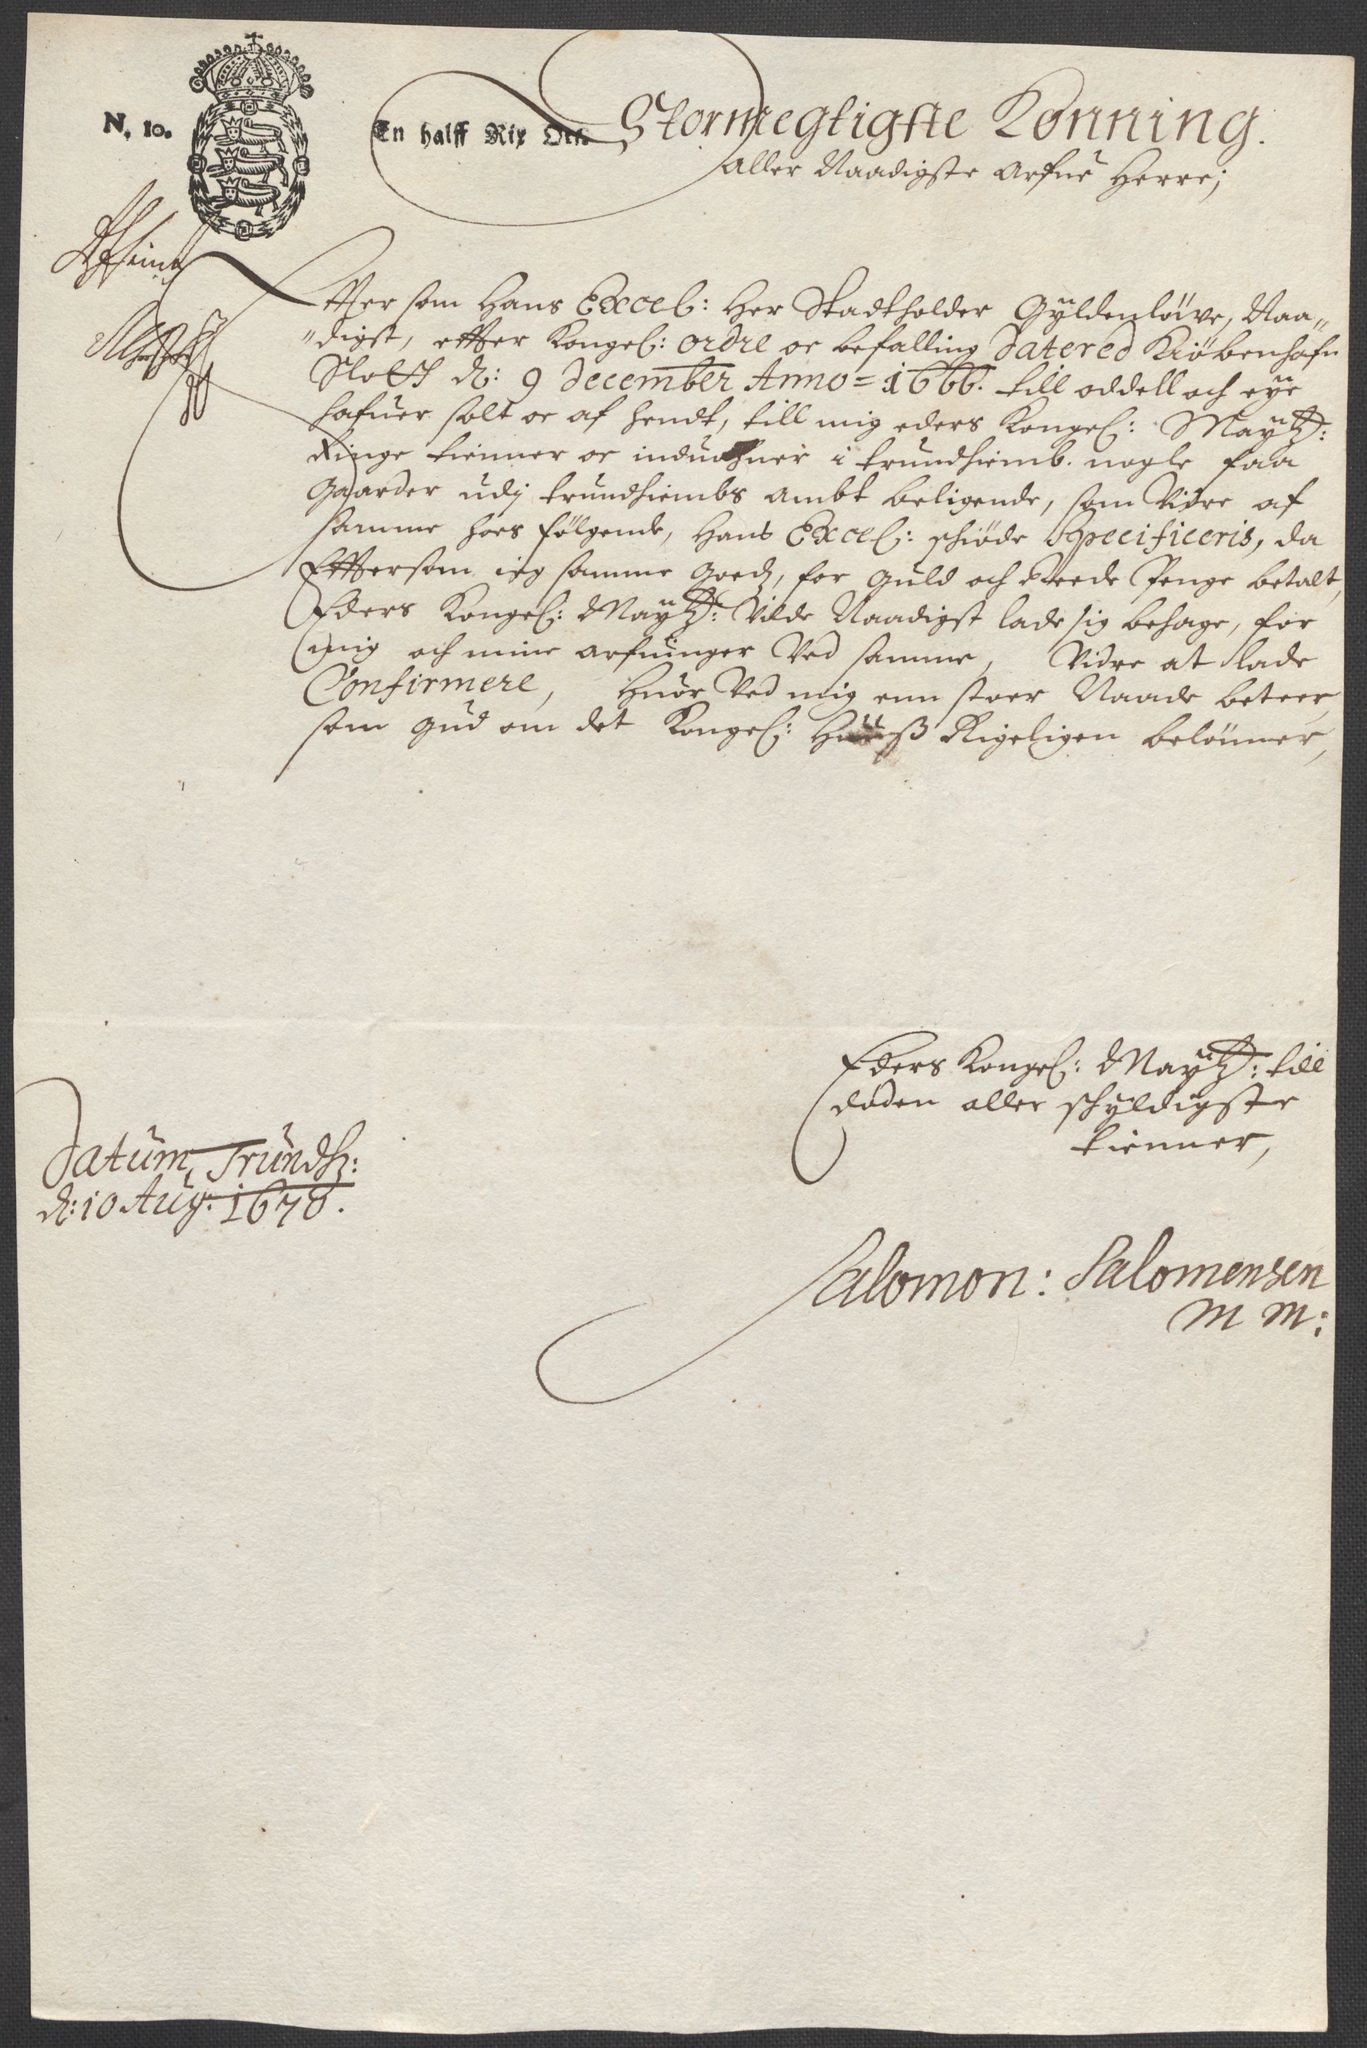 N. 10.
En halff Rix Ort.
Stormegtigste Konning.
Aller Naadigste Arfue Herre;
Effter som Hans Excel: Her Stadtholder Gÿldenlöwe, Naa„
„digst, effter Kongel: ordre oc befalling Datered Kiöbenhafn
Slott d: 9 December Anno = 1666. till oddell och eÿe
hafuer solt oc af hendt, till mig eders Kongel: Maÿtz:
Ringe tienner oc induohner i trundhiemb. nogle faa
Gaarder udj trundhiembs Ambt beligende, som Vidre af
samme hoes følgende, Hans Excel: schiöde Specificeris, da
Effttersom ieg samme Goedz, for Guld och Reede Penge betalt,
Eders Kongel: Maÿtz: Vilde Naadigst lade sig behage, for
mig och mine arfuinger Ved samme, Vidre at lade
Confirmere, Huor Ved mig enn stoer Naade beteer,
som Gud om det Kongel: Huuß Rigeligen belönner,
Eders Kongel: Maÿtz: till
döden aller schyldigste
tienner,
Datum, Trundh:
d: 10 Aug: 1678.
Salomon: Salomensen
M M: